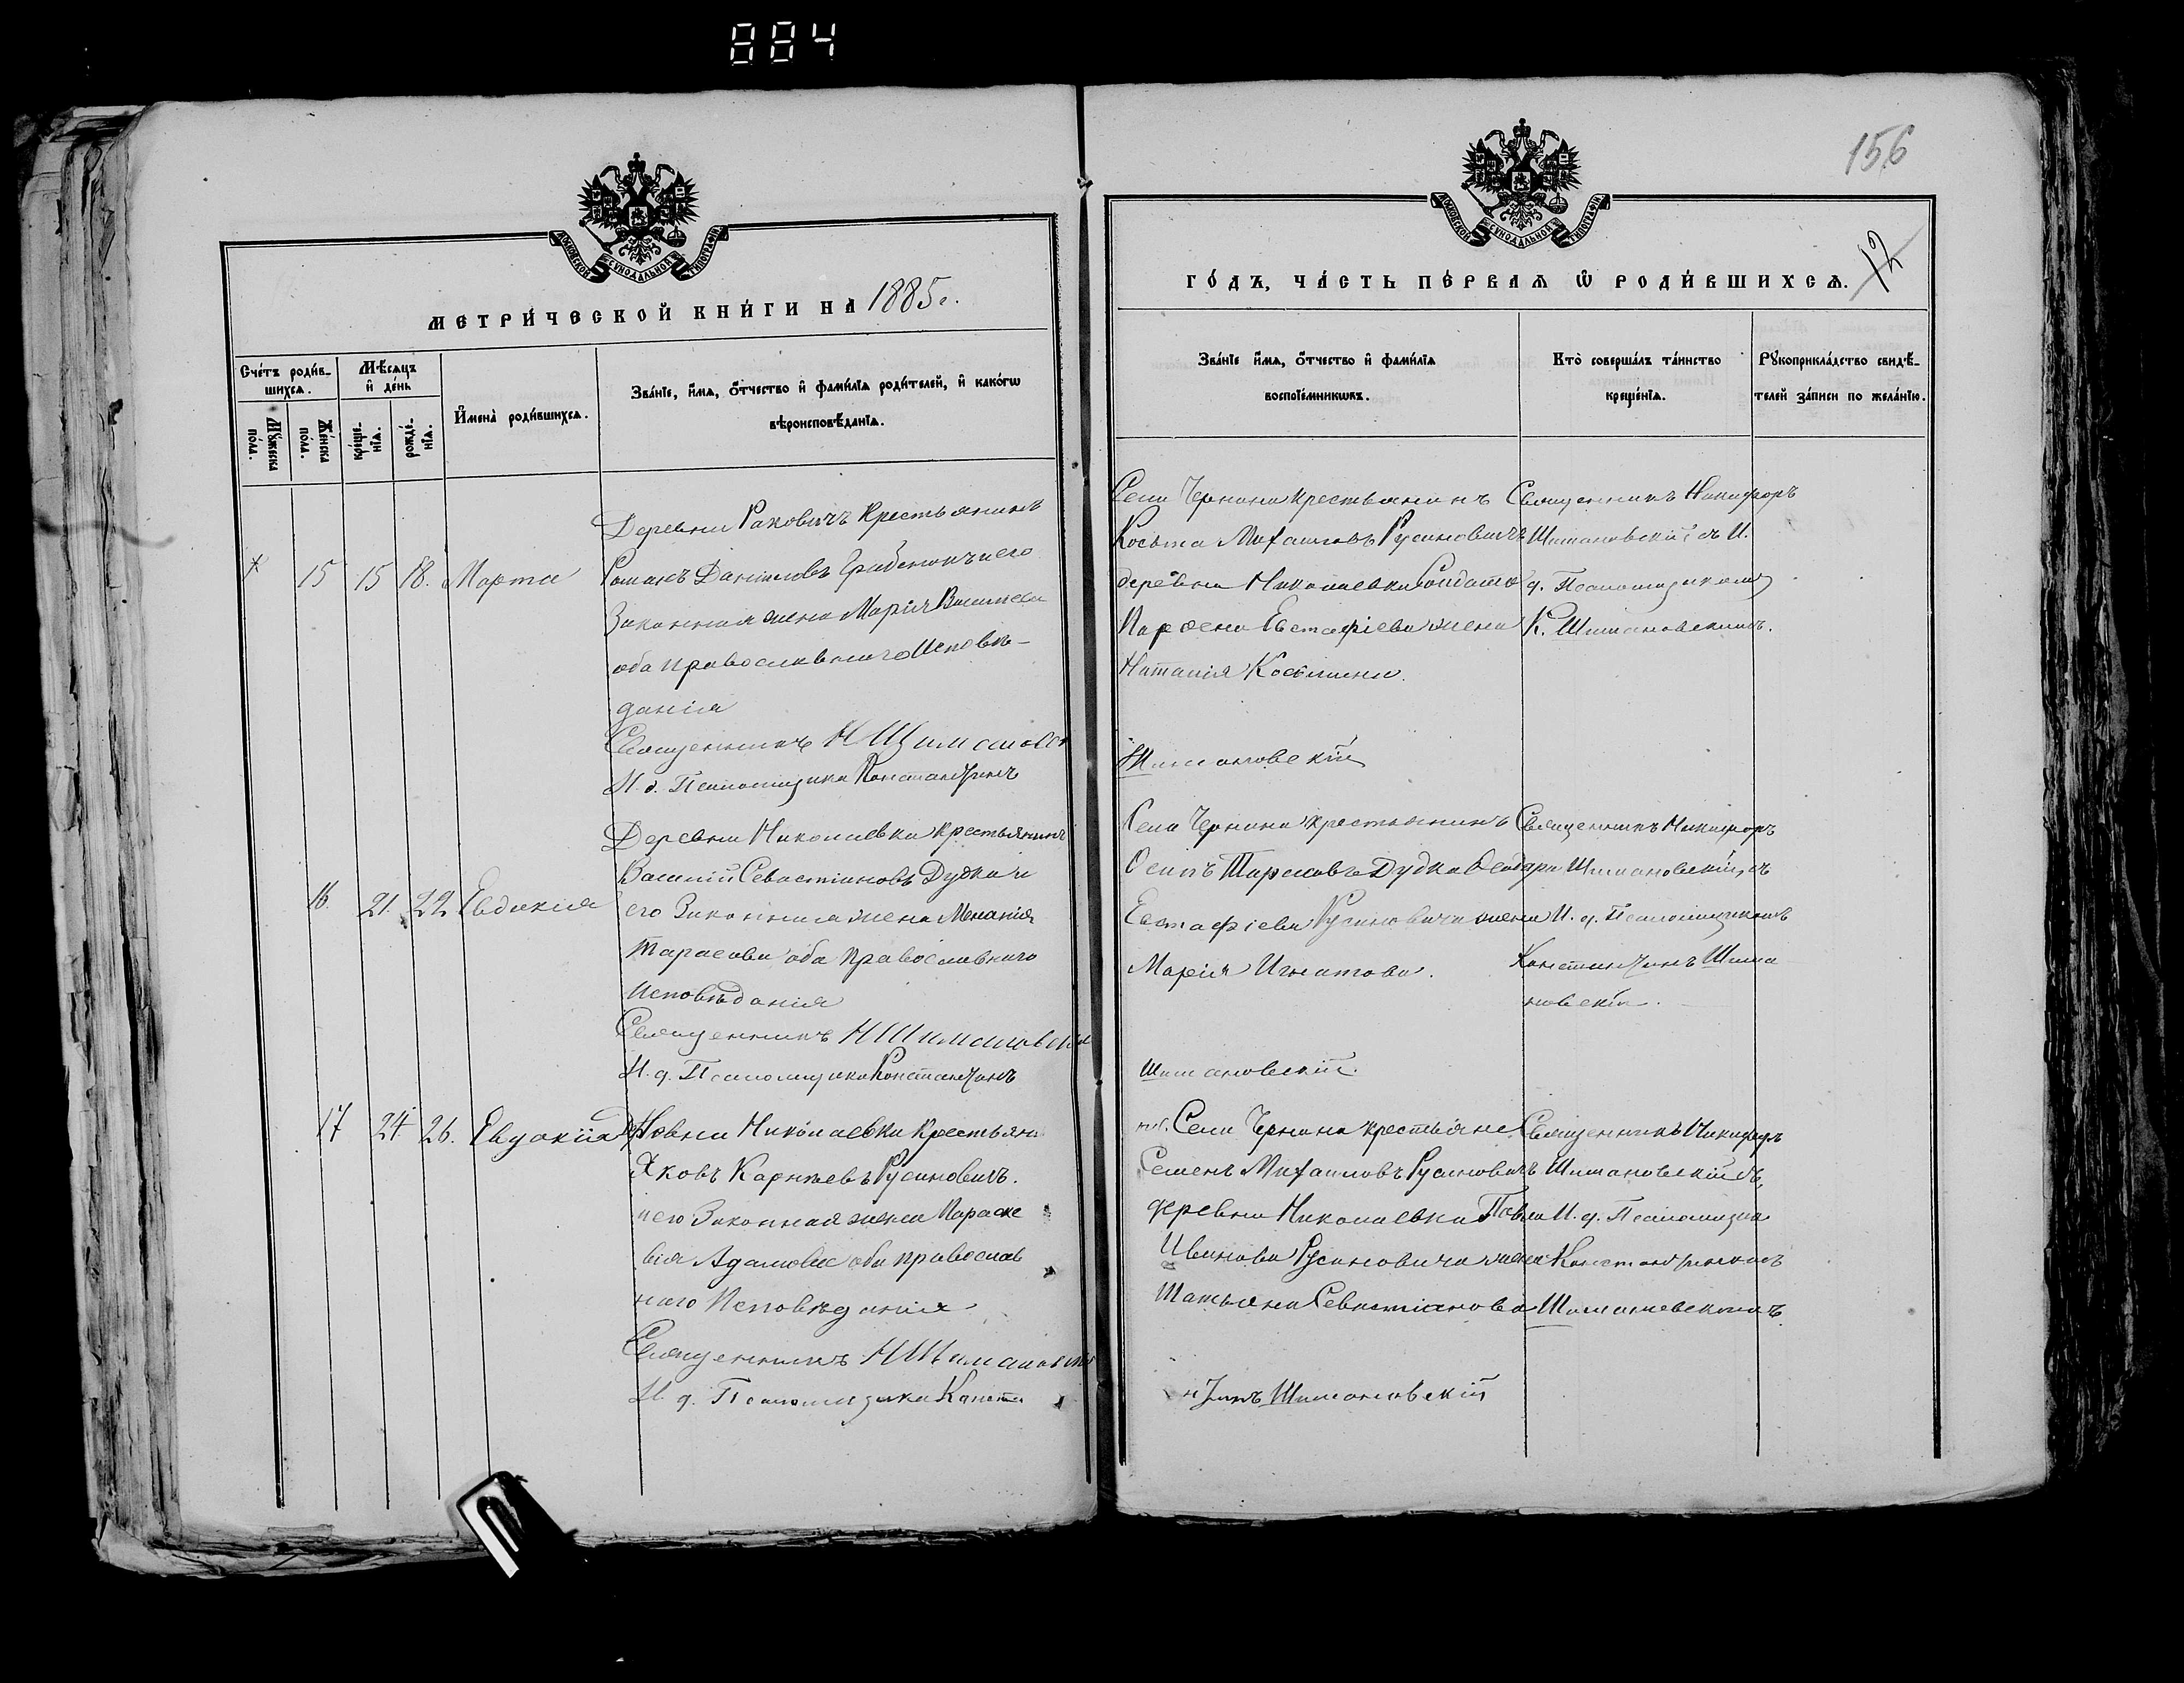 884
156
12
МОСКОВСКОЙ СѴНОДАЛЬНОЙ ТИПОГРАФІИ
МЕТРИ́ЧЕСКОЙ КНИ́ГИ НА̀ 1885 г.
Сче́тъ роди́в-
шихсѧ.
Мѣ́сѧцъ
и҆ де́нь
Мꙋ́жеска
по́ла.
Же́нска
по́ла.
креще́-
нїѧ.
рожде́-
нїѧ.
И҆мена̀ роди́вшихсѧ.
Зва́нїе, и҆́мѧ, ѻ҆́тчество и҆ фами́лїѧ роди́телей, и҆ како́гѡ
вѣроисповѣ́данїѧ.
15 15 18. Марта
Деревни Раковичъ Крестьянинъ
Романъ Даниловъ и его
Законная жена Марія
оба православнаго Исповѣ-
данія
Священникъ Н Шимановск
И. д. Псаломщика Константинъ
16. 21. 22 Евдокія
Деревни Николаевки крестьянинъ
Василій Севастіановъ Дудка и
его Законная жена Меланія
Тарасова оба Православнаго
Исповѣданія
Священникъ Н Шимановскій
И. д. Псаломщика Константинъ
17 24. 26. Евдокія
Николаевки Крестьяни
Яковъ Карпѣевъ Русиновичъ.
и его Законная жена Параске
вія Адамова оба православ
наго Исповѣданія
Священникъ Н Шимановскій
И. д. Псаломщика Конста
МОСКОВСКОЙ СѴНОДАЛЬНОЙ ТИПОГРАФІИ
ГО́ДЪ, ЧА́СТЬ ПЕ́РВАѦ Ѽ РОДИ́ВШИХСѦ.
Зва́нїе и҆́мѧ, ѻ҆́тчество и҆ фами́лїѧ
воспрїе́мникѡвъ.
Кто̀ соверша́лъ та́инство
креще́нїѧ.
Рꙋкоприкла́дство свидѣ́-
телей за́писи по жела́нїю.
Села Чернина крестьянинъ
Косьма Михаиловъ Русиновичъ
деревни Николаевки Солдата
Парѳена Евстафіева жена
Наталія Косьмина.
Священникъ Никифоръ
Шимановскій съ И.
д. Псаломщикомъ
К. Шимановскимъ.
Шимановскій
Села Чернина крестьянинъ
Осипъ Тарасовъ Дудка
Евстафіева Русиновича жена
Марія Игнатова.
Священникъ Никифоръ
Шимановскій, съ
И. д. Псаломщикомъ
Константинъ Шима
новскій.
Шимановскій.
Села Чернина крестьяне
Семенъ Михаиловъ Русиновичъ
деревни Николаевки Павла
Иванова Русиновича жена
Татьяна Севастіанова
Священникъ Никифоръ
Шимановскій съ,
И. д. Псаломщика
Константиномъ
Шимановскимъ.
нтинъ Шимановскій